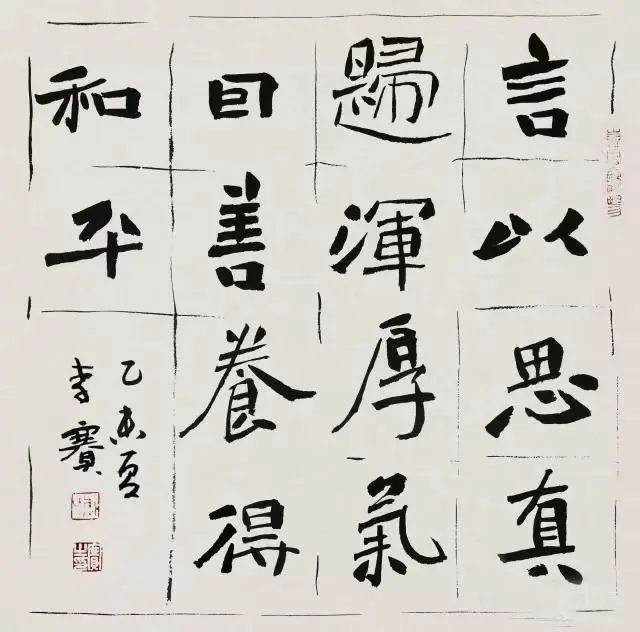 言以思真
歸渾厚氣
因善養得
和平
乙未夏
李賽